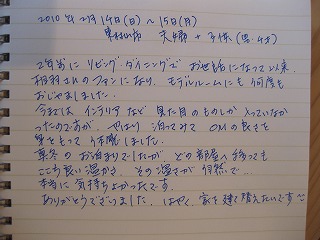 2010年 2月14日(日)～15日(月)
夫婦 + 子供(男:4才)
2年前に リビングダイニングで お世話になって以来、
相羽さんのファンになり、モデルルームにも何度も
おじゃましました。
今までは インテリアなど 見た目のものしか 入っていなか
ったのですが、やはり 泊ってみて OMの良さを
身をもって 体感しました。
真冬のお泊まりでしたが どの部屋へ移っても
ここち良い温かさ、その温さが自然で…
本当に 気持ちよかったです。
ありがとうございました。はやく 家を建て替えたいです